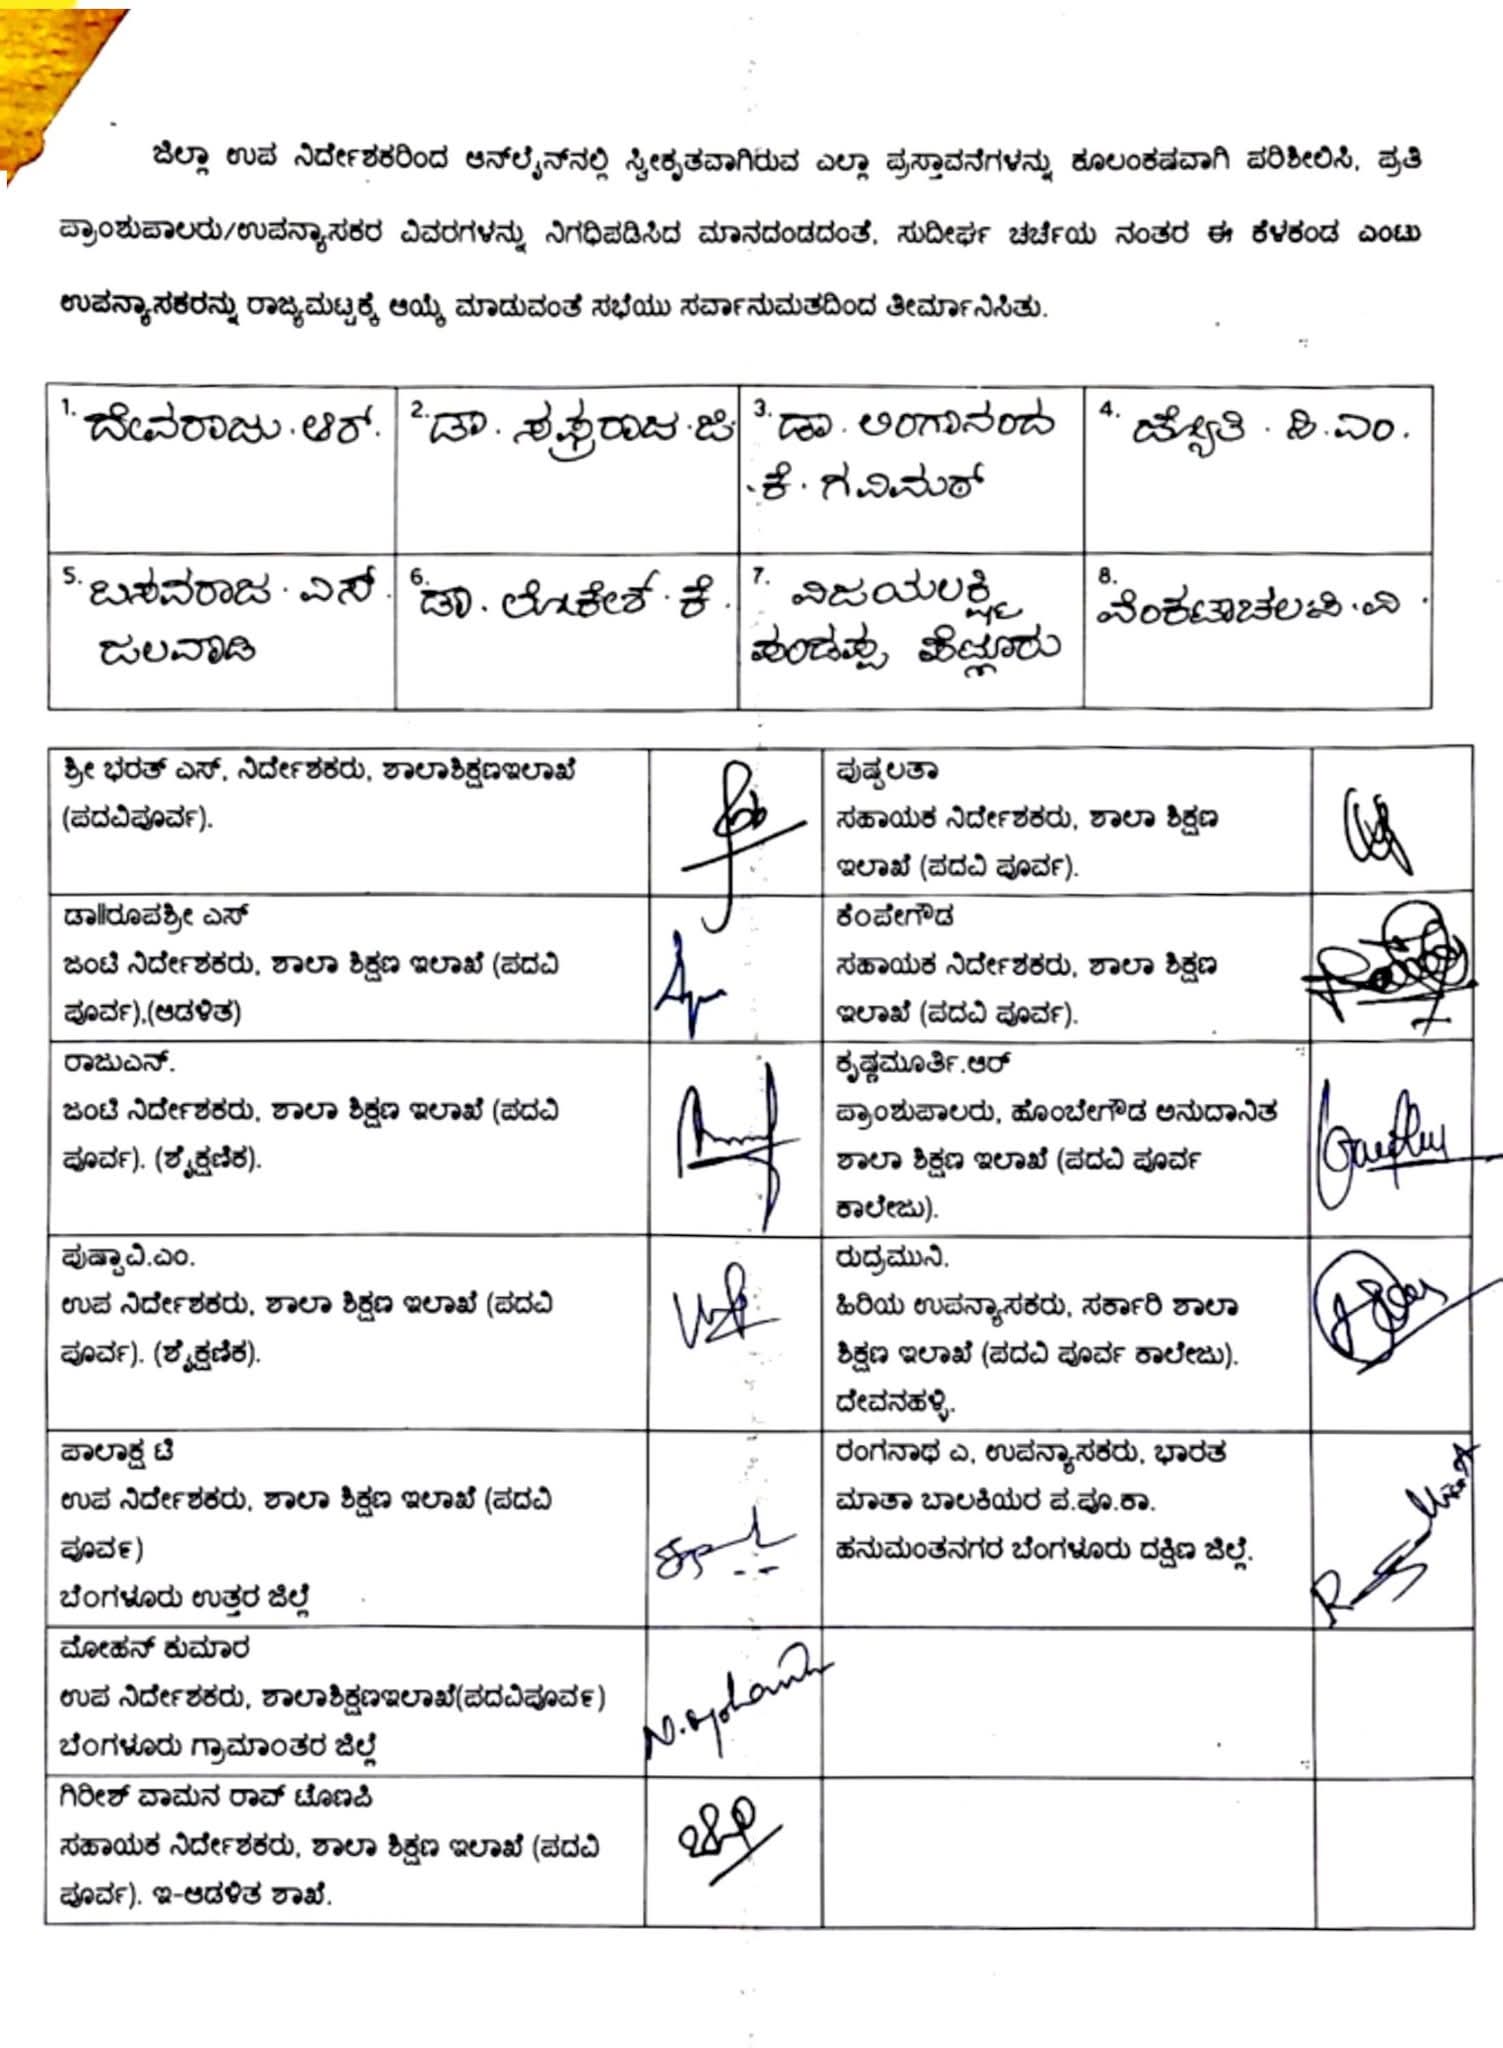 ಜಿಲ್ಲಾ ಉಪ ನಿರ್ದೇಶಕರಿಂದ ಆನ್‌ಲೈನ್‌ನಲ್ಲಿ ಸ್ವೀಕೃತವಾಗಿರುವ ಎಲ್ಲಾ ಪ್ರಸ್ತಾವನೆಗಳನ್ನು ಕೂಲಂಕಷವಾಗಿ ಪರಿಶೀಲಿಸಿ, ಪ್ರತಿ
ಪ್ರಾಂಶುಪಾಲರು/ಉಪನ್ಯಾಸಕರ ವಿವರಗಳನ್ನು ನಿಗಧಿಪಡಿಸಿದ ಮಾನದಂಡದಂತೆ, ಸುದೀರ್ಘ ಚರ್ಚೆಯ ನಂತರ ಈ ಕೆಳಕಂಡ ಎಂಟು
ಉಪನ್ಯಾಸಕರನ್ನು ರಾಜ್ಯಮಟ್ಟಕ್ಕೆ ಆಯ್ಕೆ ಮಾಡುವಂತೆ ಸಭೆಯು ಸರ್ವಾನುಮತದಿಂದ ತೀರ್ಮಾನಿಸಿತು.
1. ದೇವರಾಜು. ಆರ್.
2. ಡಾ. ಪುಷ್ಪರಾಜ. ಜಿ
3. ಡಾ. ಲಿಂಗಾನಂದ
ಕೆ. ಗವಿಮಠ್
4. ಜ್ಯೋತಿ. ಸಿ.ಎಂ.
5. ಬಸವರಾಜ. ಎಸ್.
ಜಲವಾಡಿ
6. ಡಾ. ಲೋಕೇಶ್. ಕೆ.
7. ವಿಜಯಲಕ್ಷ್ಮಿ
ಪುಂಡಪ್ಪ ಹೆಬ್ಳೂರು
8. ವೆಂಕಟಾಚಲಪತಿ. ವಿ.
ಶ್ರೀ ಭರತ್ ಎಸ್, ನಿರ್ದೇಶಕರು, ಶಾಲಾಶಿಕ್ಷಣಇಲಾಖೆ
(ಪದವಿಪೂರ್ವ).
ಪುಷ್ಪಲತಾ
ಸಹಾಯಕ ನಿರ್ದೇಶಕರು, ಶಾಲಾ ಶಿಕ್ಷಣ
ಇಲಾಖೆ (ಪದವಿ ಪೂರ್ವ).
ಡಾ||ರೂಪಶ್ರೀ ಎಸ್
ಜಂಟಿ ನಿರ್ದೇಶಕರು, ಶಾಲಾ ಶಿಕ್ಷಣ ಇಲಾಖೆ (ಪದವಿ
ಪೂರ್ವ),(ಆಡಳಿತ)
ಕೆಂಪೇಗೌಡ
ಸಹಾಯಕ ನಿರ್ದೇಶಕರು, ಶಾಲಾ ಶಿಕ್ಷಣ
ಇಲಾಖೆ (ಪದವಿ ಪೂರ್ವ).
ರಾಜುಎನ್.
ಜಂಟಿ ನಿರ್ದೇಶಕರು, ಶಾಲಾ ಶಿಕ್ಷಣ ಇಲಾಖೆ (ಪದವಿ
ಪೂರ್ವ). (ಶೈಕ್ಷಣಿಕ).
ಕೃಷ್ಣಮೂರ್ತಿ.ಆರ್
ಪ್ರಾಂಶುಪಾಲರು, ಹೊಂಬೇಗೌಡ ಅನುದಾನಿತ
ಶಾಲಾ ಶಿಕ್ಷಣ ಇಲಾಖೆ (ಪದವಿ ಪೂರ್ವ
ಕಾಲೇಜು).
ಪುಷ್ಪಾವಿ.ಎಂ.
ಉಪ ನಿರ್ದೇಶಕರು, ಶಾಲಾ ಶಿಕ್ಷಣ ಇಲಾಖೆ (ಪದವಿ
ಪೂರ್ವ). (ಶೈಕ್ಷಣಿಕ).
ರುದ್ರಮುನಿ.
ಹಿರಿಯ ಉಪನ್ಯಾಸಕರು, ಸರ್ಕಾರಿ ಶಾಲಾ
ಶಿಕ್ಷಣ ಇಲಾಖೆ (ಪದವಿ ಪೂರ್ವ ಕಾಲೇಜು).
ದೇವನಹಳ್ಳಿ.
ಪಾಲಾಕ್ಷ ಟಿ
ಉಪ ನಿರ್ದೇಶಕರು, ಶಾಲಾ ಶಿಕ್ಷಣ ಇಲಾಖೆ (ಪದವಿ
ಪೂರ್ವ)
ಬೆಂಗಳೂರು ಉತ್ತರ ಜಿಲ್ಲೆ
ರಂಗನಾಥ ಎ, ಉಪನ್ಯಾಸಕರು, ಭಾರತ
ಮಾತಾ ಬಾಲಕಿಯರ ಪ.ಪೂ.ಕಾ.
ಹನುಮಂತನಗರ ಬೆಂಗಳೂರು ದಕ್ಷಿಣ ಜಿಲ್ಲೆ.
ಮೋಹನ್ ಕುಮಾರ
ಉಪ ನಿರ್ದೇಶಕರು, ಶಾಲಾಶಿಕ್ಷಣಇಲಾಖೆ(ಪದವಿಪೂರ್ವ)
ಬೆಂಗಳೂರು ಗ್ರಾಮಾಂತರ ಜಿಲ್ಲೆ
ಗಿರೀಶ್ ವಾಮನ ರಾವ್ ಟೊಣಪಿ
ಸಹಾಯಕ ನಿರ್ದೇಶಕರು, ಶಾಲಾ ಶಿಕ್ಷಣ ಇಲಾಖೆ (ಪದವಿ
ಪೂರ್ವ). ಇ-ಆಡಳಿತ ಶಾಖೆ.